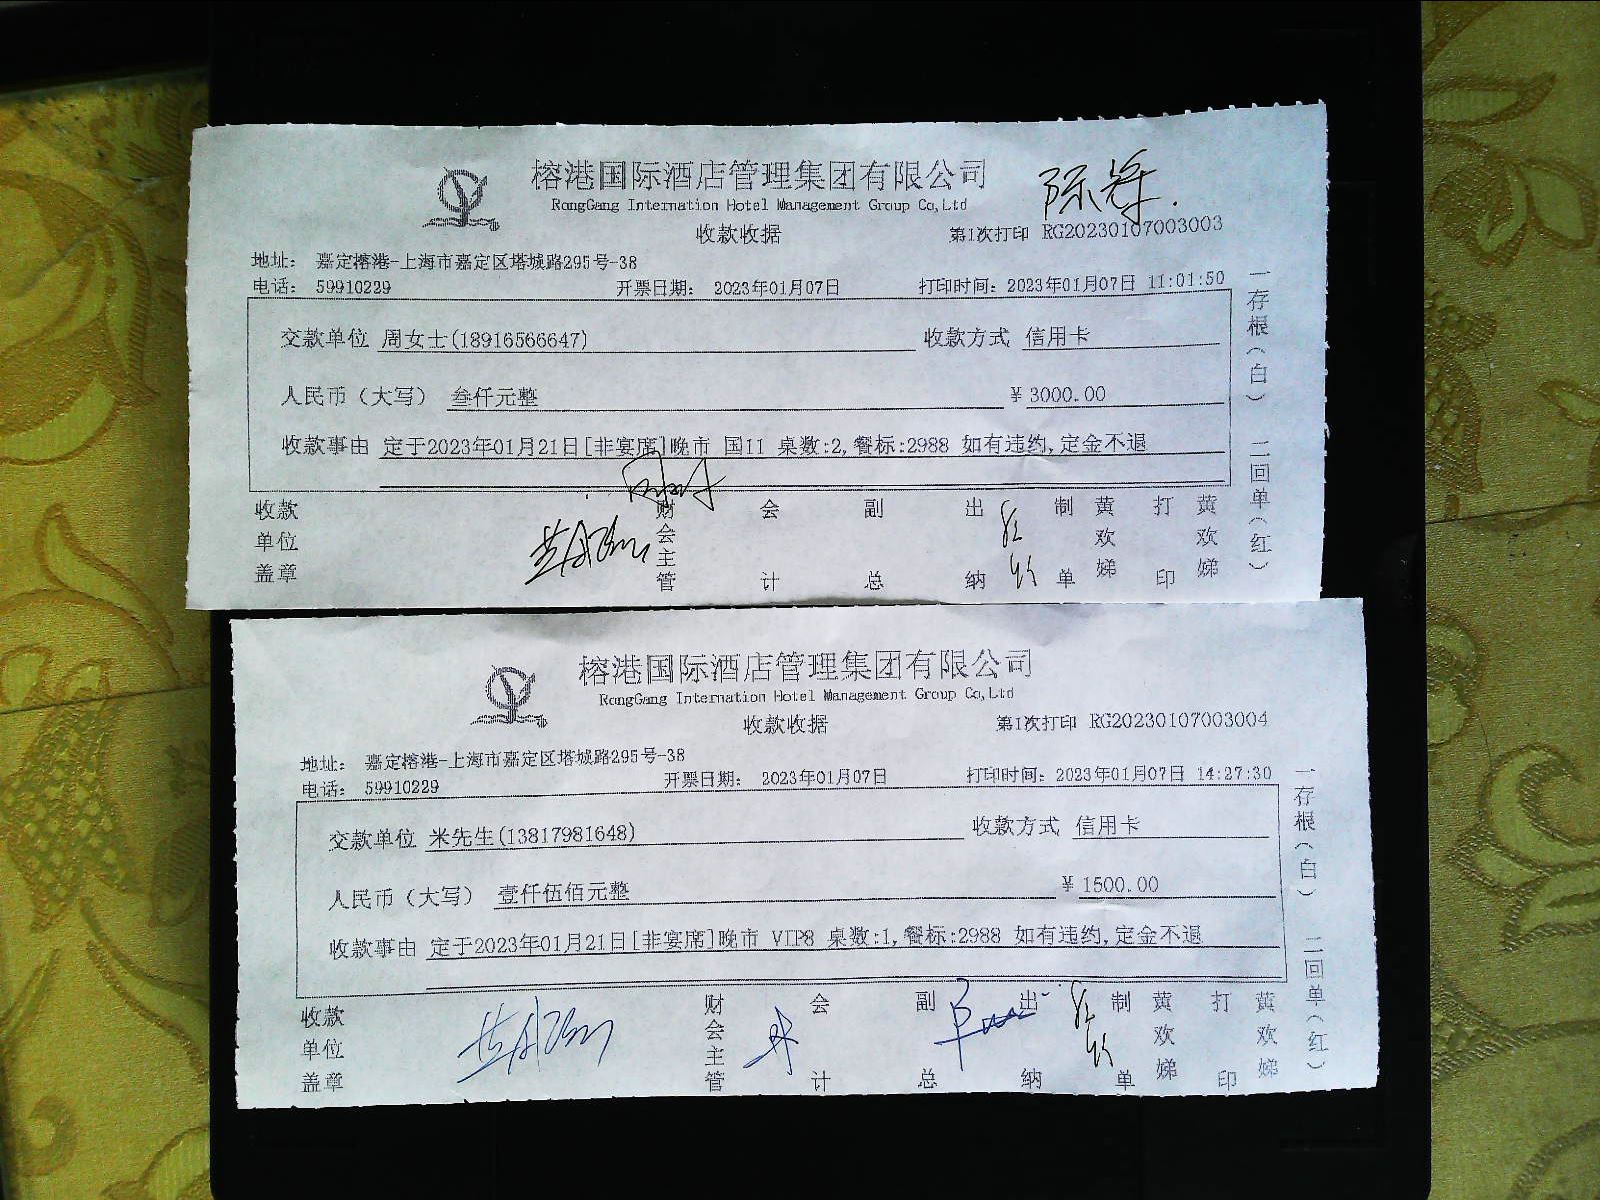 榕港国际酒店管理集团有限公司
RongGang Internation Hotel Management Group Co,Ltd
陈
收款收据 第1次打印 RG20230107003003
地址: 嘉定榕港-上海市嘉定区塔城路295号-38
电话: 59910229 开票日期: 2023年01月07日 打印时间: 2023年01月07日 11:01:50
交款单位 周女士(18916566647) 收款方式 信用卡
人民币（大写） 叁仟元整 ¥ 3000.00
收款事由 定于2023年01月21日[非宴席]晚市 国11 桌数:2,餐标:2988 如有违约,定金不退
收款单位盖章 财会主管 会计 副总 出纳 制单 黄欢娣 打印 黄欢娣
一存根（白） 二回单（红）
榕港国际酒店管理集团有限公司
RongGang Internation Hotel Management Group Co,Ltd
收款收据 第1次打印 RG20230107003004
地址: 嘉定榕港-上海市嘉定区塔城路295号-38
电话: 59910229 开票日期: 2023年01月07日 打印时间: 2023年01月07日 14:27:30
交款单位 米先生(13817981648) 收款方式 信用卡
人民币（大写） 壹仟伍佰元整 ¥ 1500.00
收款事由 定于2023年01月21日[非宴席]晚市 VIP8 桌数:1,餐标:2988 如有违约,定金不退
收款单位盖章 财会主管 会计 副总 出纳 制单 黄欢娣 打印 黄欢娣
一存根（白） 二回单（红）